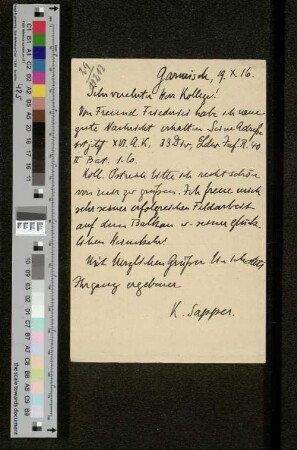 Garmisch, 19. X. 16.
Sehr verehrter Herr Kollege!
Von Freund Friederici habe ich neue
gute Nachricht erhalten. Seine Adresse
ist jetzt XVI. A.K., 33 Div., Ldw. Inf. R. 40
II Bat. 1. Co.
Koll. Ostreich bitte ich recht schön
von mir zu grüßen. Ich freue mich
sehr seiner erfolgreichen Feldarbeit
auf dem Balkan u. seiner glück-
lichen Heimkehr!
Mit herzlichen Grüßen bin ich stets
Ihr ganz ergebener
K. Sapper.